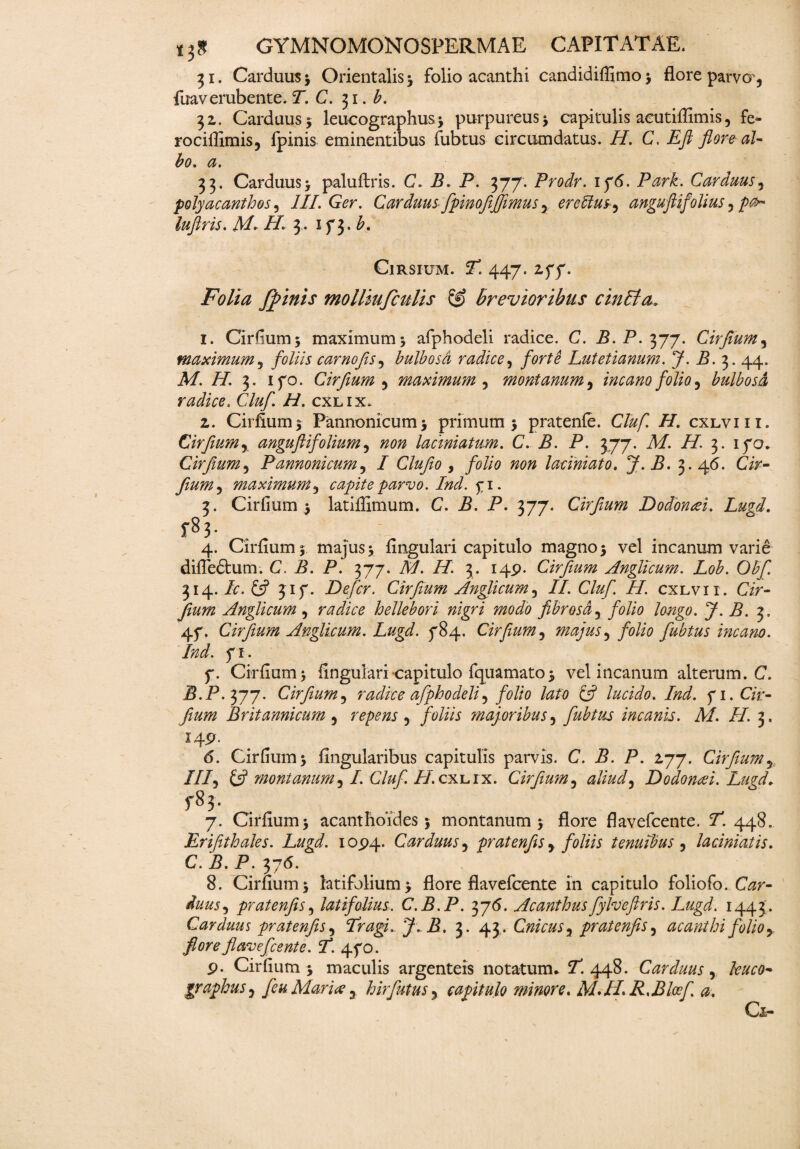 138 GYMNOMONOSPERMAE CAPITATAE.
31. Carduus; Orientalis; folio acanthi candidiſſimo; flore parvo,
ſuaverubente. T. C. 31. b.
32. Carduus; leucographus; purpureus; capitulis acutiſſimis, fe-
rociſſimis, ſpinis eminentibus ſubtus circumdatus. H. C. Eſt flore al-
bo. a.
33. Carduus; paluſtris. C. B. P. 377. Prodr. 156. Park. Carduus,
polyacanthos, III. Ger. Carduus ſpinoſiſſimus, erectus, anguſtifolius, pa-
luſtris. M. H. 3. 153. b.
CIRSIUM. T. 447. 255.
Folia ſpinis molliuſculis & brevioribus cincta.
1. Cirſium; maximum; aſphodeli radice. C. B. P. 377. Cirſium,
maximum, foliis carnoſis, bulboſâ radice, fortè Lutetianum. J. B. 3. 44.
M. H. 3. 150. Cirſium, maximum, montanum, incano folio, bulboſâ
radice. Cluſ. H. CXLIX.
2. Cirſium; Pannonicum; primum; pratenſe. Cluſ. H. CXLVIII.
Cirſium, anguſtifolium, non laciniatum. C. B. P. 377. M. H. 3. 150.
Cirſium, Pannonicum, I Cluſio, folio non laciniato. J. B. 3. 46. Cir-
ſium, maximum, capite parvo. Ind. 51.
3. Cirſium; latiſſimum. C. B. P. 377. Cirſium Dodonæi. Lugd.
583.
4. Cirſium; majus; ſingulari capitulo magno; vel incanum variè
diſſectum. C. B. P. 377. M. H. 3. 149. Cirſium Anglicum. Lob. Obſ.
314. Ic. & 315. Deſcr. Cirſium Anglicum, II. Cluſ. H. CXLVII. Cir-
ſium Anglicum, radice hellebori nigri modo fibroſâ, folio longo. J. B. 3.
45. Cirſium Anglicum. Lugd. 584. Cirſium, majus, folio ſubtus incano.
Ind. 51.
5. Cirſium; ſingulari capitulo ſquamato; vel incanum alterum. C.
B. P. 377. Cirſium, radice aſphodeli, folio lato & lucido. Ind. 51. Cir-
ſium Britannicum, repens, foliis majoribus, ſubtus incanis. M. H. 3.
149.
6. Cirſium; ſingularibus capitulis parvis. C. B. P. 277. Cirſium,
III, & montanum, I. Cluſ. H. CXLIX. Cirſium, aliud, Dodonæi. Lugd.
583.
7. Cirſium; acanthoïdes; montanum; flore flaveſcente. T. 448.
Eriſithales. Lugd. 1094. Carduus, pratenſis, foliis tenuibus, laciniatis.
C. B. P. 376.
8. Cirſium; latifolium; flore flaveſcente in capitulo folioſo. Car-
duus, pratenſis, latifolius. C. B. P. 376. Acanthus ſylveſtris. Lugd. 1443.
Carduus pratenſis, Tragi. J. B. 3. 43. Cnicus, pratenſis, acanthi folio,
flore flaveſcente. T. 450.
9. Cirſium; maculis argenteis notatum. T. 448. Carduus, leuco-
graphus, ſeu Mariæ, hirſutus, capitulo minore. M. H. R. Blœſ. a.
Ci-